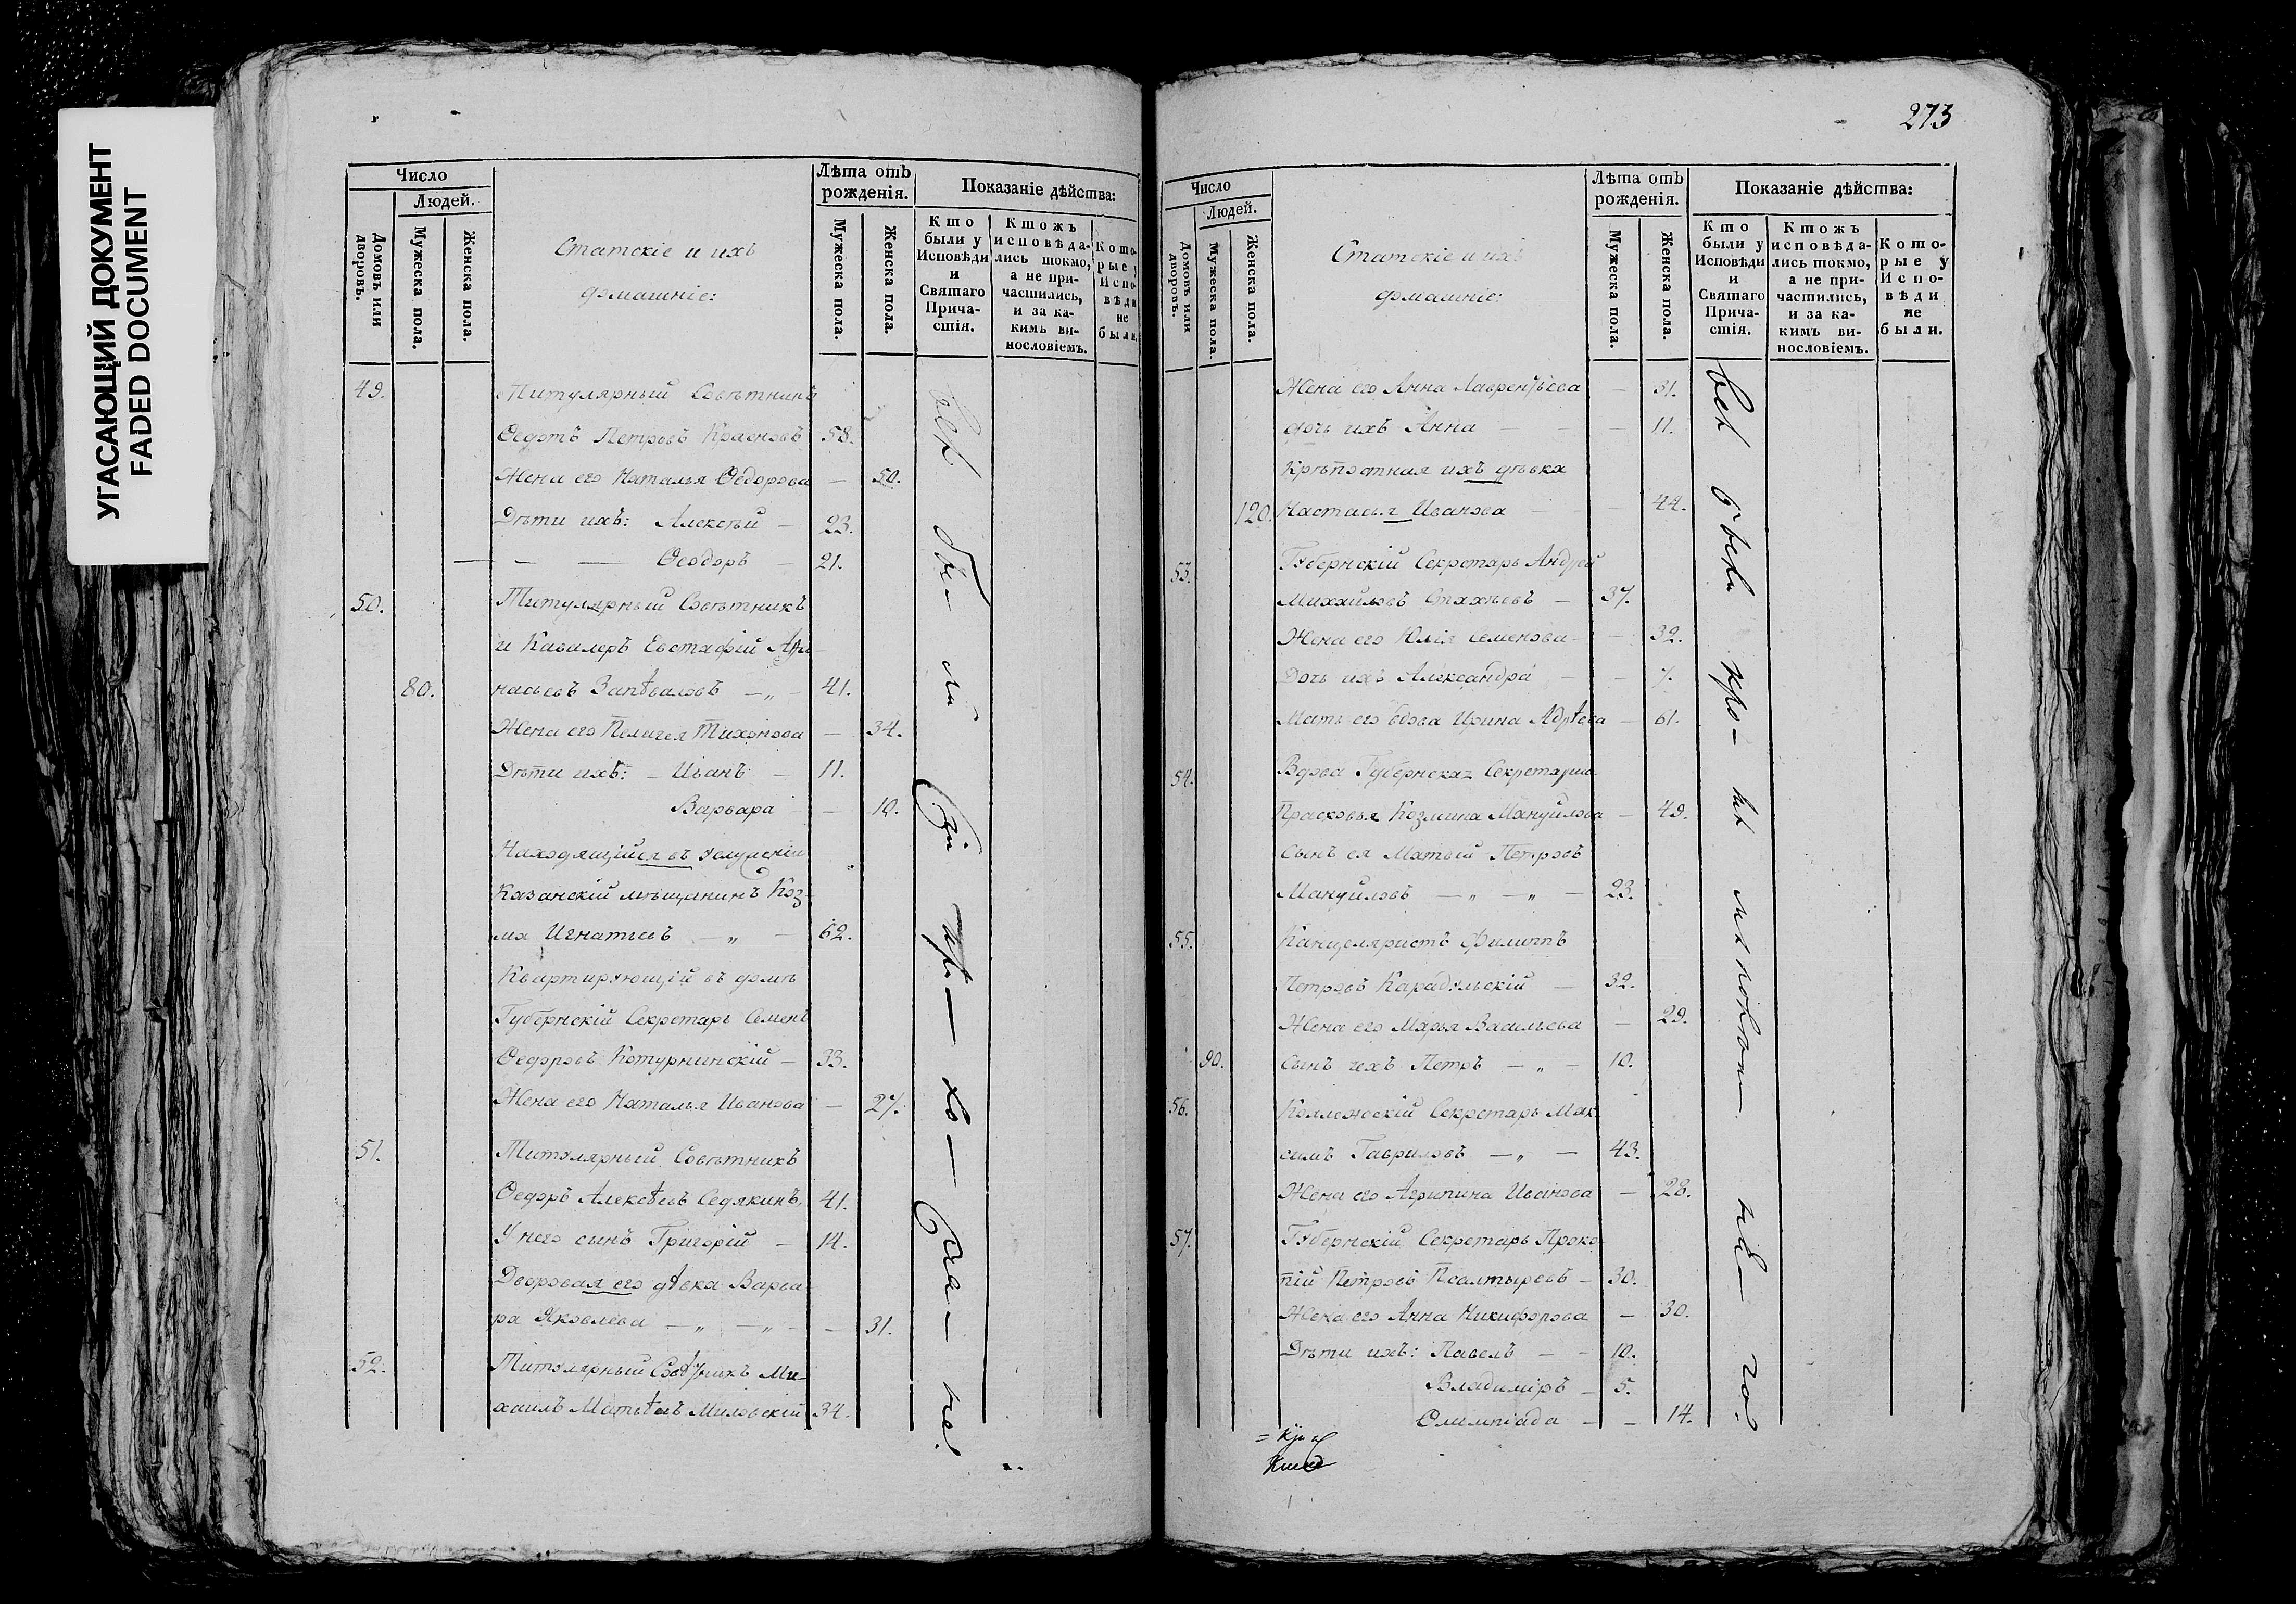 УГАСАЮЩИЙ ДОКУМЕНТ
FADED DOCUMENT
Число
Людей.
Домовъ или дворовъ.
Мужеска пола.
Женска пола.
Статскіе и ихъ
домашніе:
Лѣта отъ рожденія.
Мужеска пола.
Женска пола.
Показаніе дѣйства:
Кто были у Исповѣди и Святаго Прича-стія.
Ктожъ исповѣда-лись токмо, а не при-частились, и за ка-кимъ ви-нословіемъ.
Кото-рые у Испо-вѣди не были.
49. Титулярный Совѣтникъ
Ѳедотъ Петровъ Красновъ 58.
Жена его Наталья Ѳедорова — 50.
Дѣти ихъ: Алексѣй — 23.
— — — Ѳеодоръ — 21.
50. Титулярный Совѣтникъ
и Кавалеръ Евстафій Аѳа-
80. насьевъ — „ — 41.
Жена его Пелагея Тихонова — 34.
Дѣти ихъ: — Иванъ — 11.
Варвара — — 10.
Находящійся въ услуженіи
Казанскій мѣщанинъ Коз-
ма Игнатьевъ — „ — 62.
Квартирующій въ домѣ
Губернскій Секретарь Семенъ
Ѳедоровъ Котурнинскій — 33.
Жена его Наталья Иванова — 27.
51. Титулярный Совѣтникъ
Ѳедоръ Алексѣевъ Седякинъ, 41.
У него сынъ Григорій — 14.
Дворовая его дѣвка Варва-
ра Яковлева — „ — „ — — 31.
52. Титулярный Совѣтникъ Ми-
хаилъ Матвѣевъ Миловскій 34.
273
Число
Людей.
Домовъ или дворовъ.
Мужеска пола.
Женска пола.
Статскіе и ихъ
домашніе:
Лѣта отъ рожденія.
Мужеска пола.
Женска пола.
Показаніе дѣйства:
Кто были у Исповѣди и Святаго Прича-стія.
Ктожъ исповѣда-лись токмо, а не при-частились, и за ка-кимъ ви-нословіемъ.
Кото-рые у Испо-вѣди не были.
Жена его Анна Лаврентьева — 31.
дочь ихъ Анна — — 11.
Крѣпостная ихъ дѣвка
120. Настасья Иванова — — 44.
53. Губернскій Секретарь Андрей
Михайловъ Стахѣевъ — 37.
Жена его Юлія Семенова — 32.
Дочь ихъ Александра — — 7.
Мать его вдова Ирина — 61.
54. Вдова Губернская Секретарша
Прасковья Козмина Мануйлова — 49.
Сынъ ея Матвей Петровъ
Мануйловъ — „ — „ — 23.
55. Канцеляристъ Филиппъ
Петровъ — 32.
Жена его Марья Васильева — 29.
90. Сынъ ихъ Петръ — „ — 10.
56. Коллежскій Секретарь Мак-
симъ Гавриловъ — „ — 43.
Жена его Агрипина Иванова — 28.
57. Губернскій Секретарь Проко-
пій Петровъ Псалтыревъ — 30.
Жена его Анна Никифорова — 30.
Дѣти ихъ: Павелъ — — 10.
Владиміръ — 5.
Олимпіада — — 14.